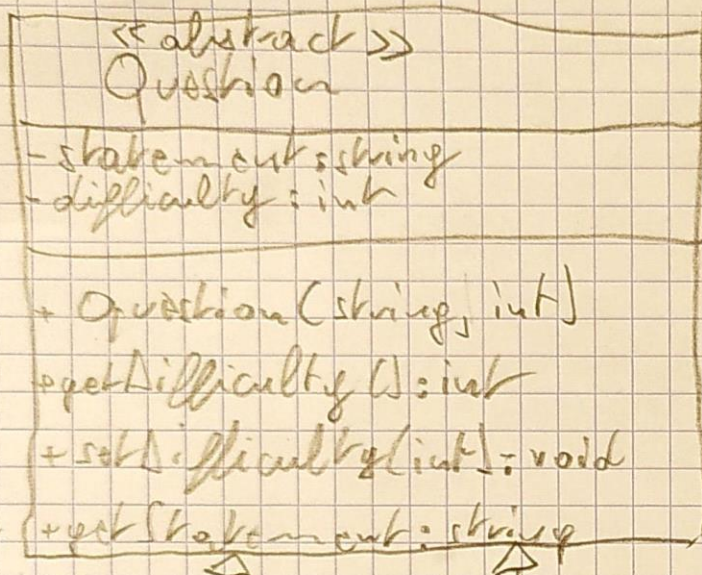 <<abstract>>
Question
- statement : string
- difficulty : int
+ Question (string, int)
+ getDifficulty () : int
+ setDifficulty (int) : void
+ getStatement : string